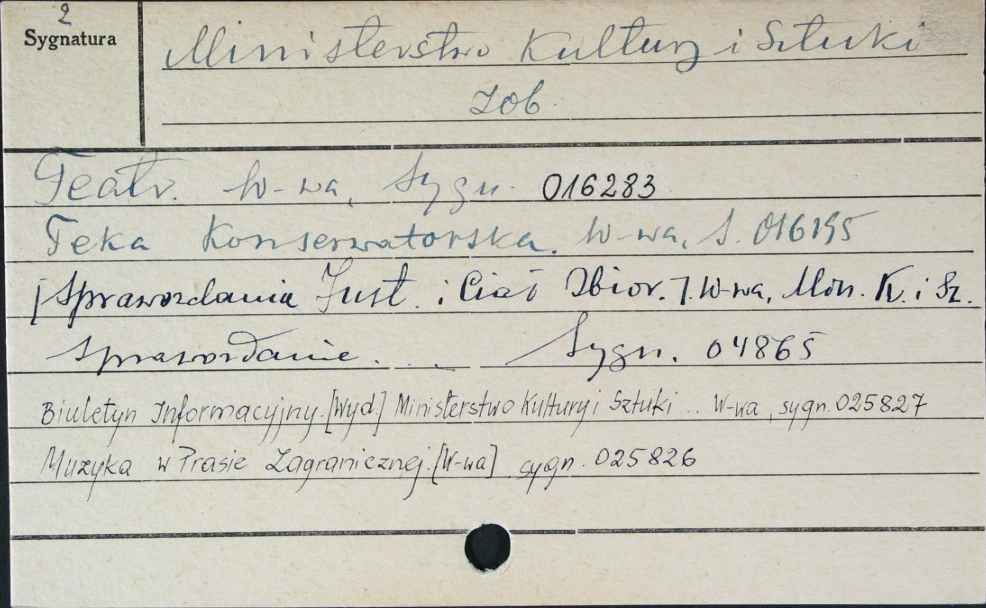 2
Sygnatura
Ministerstwo Kultury i Sztuki
zob.
Teatr. W-wa, Sygn. 016283
Teka Konserwatorska. W-wa, S. 016195
[Sprawozdania Inst. i Ciał Zbior.]. W-wa, Min. K. i Sz.
Sprawozdanie. . . Sygn. 04865
Biuletyn Informacyjny. [Wyd.] Ministerstwo Kultury i Sztuki .. W-wa, sygn. 025827
Muzyka w Prasie Zagranicznej. [W-wa] sygn. 025826